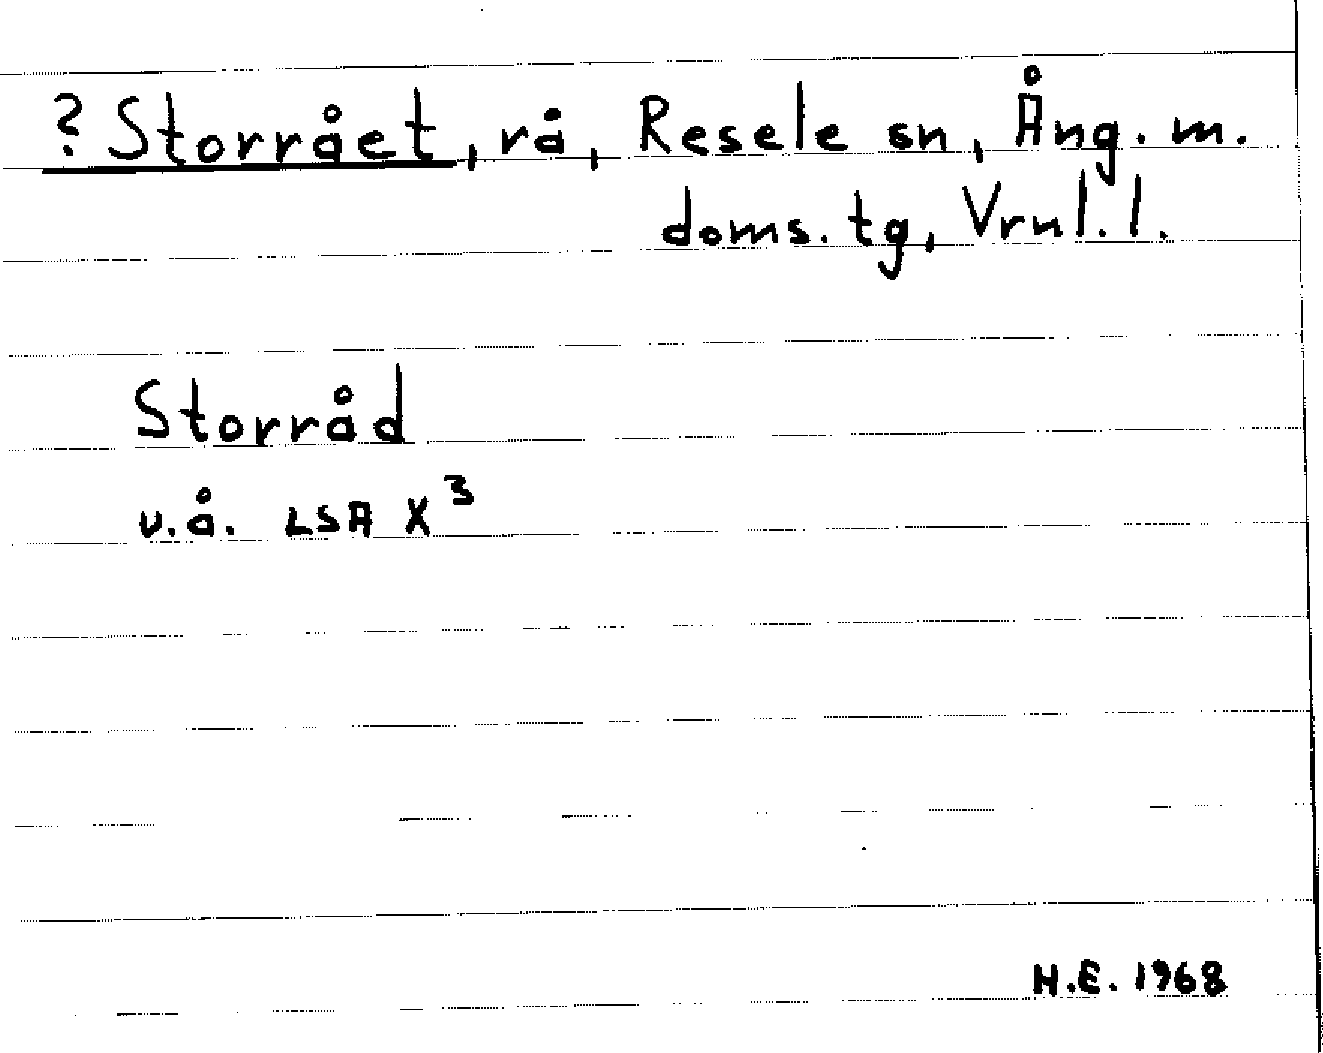 ? Storrået, rå, Resele sn, Ång. m.
doms. tg, Vrnl. l.
Storråd
u.å. LSA X³
H.E. 1968